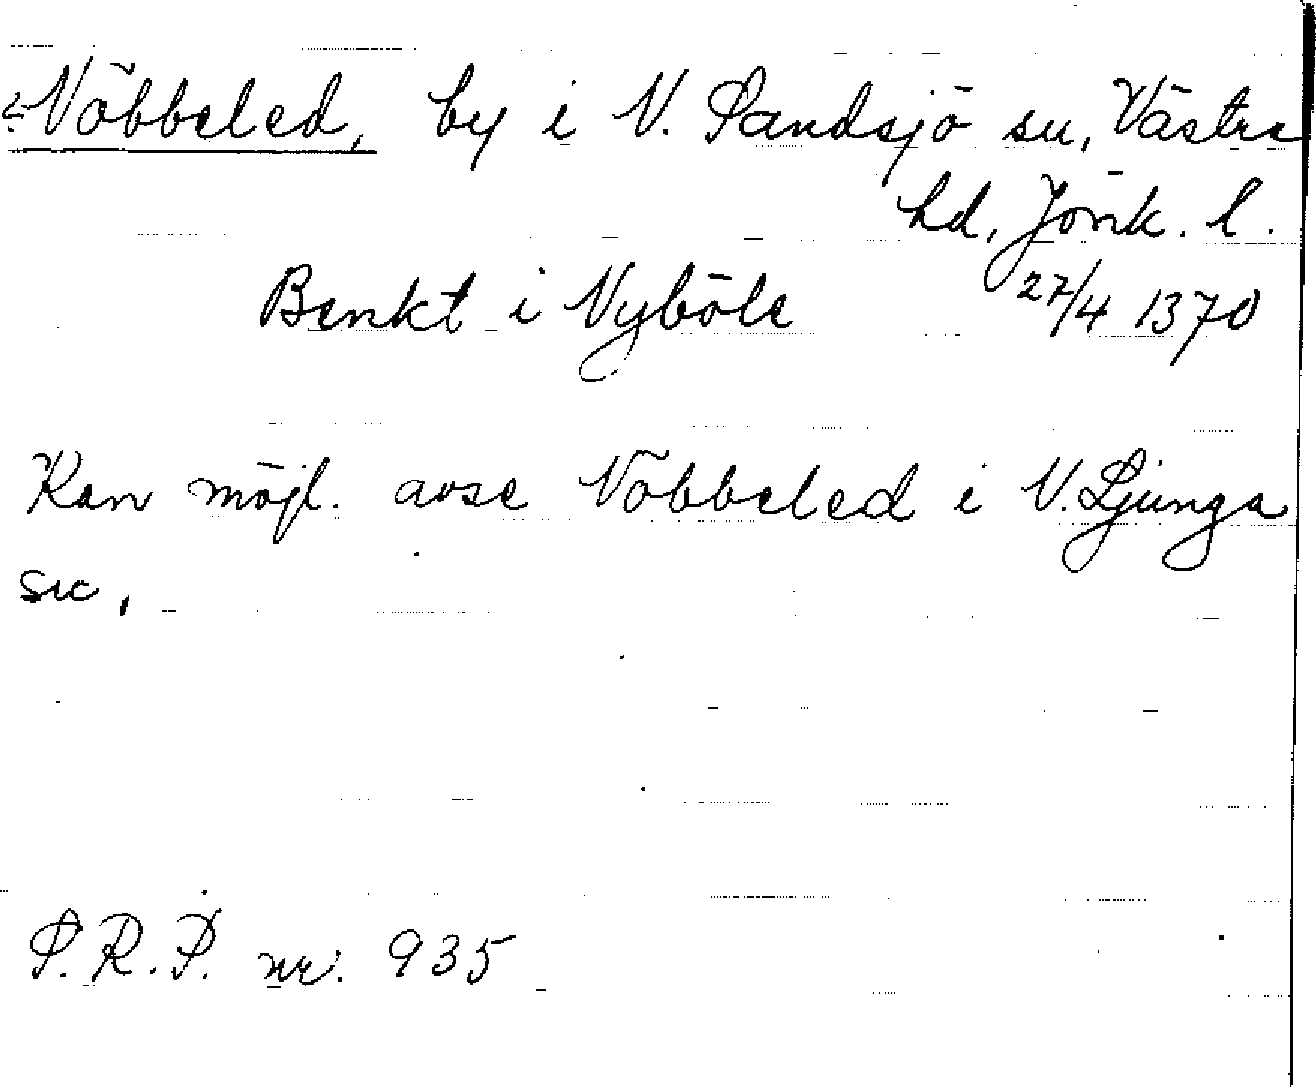 ? Nöbbeled, by i N. Sandsjö sn, Västra
hd, Jönk. l.
Benkt i Nyböle 27/4 1370
Kan möjl. avse Nöbbeled i N. Ljunga
sn.
S.R.P. nr. 935